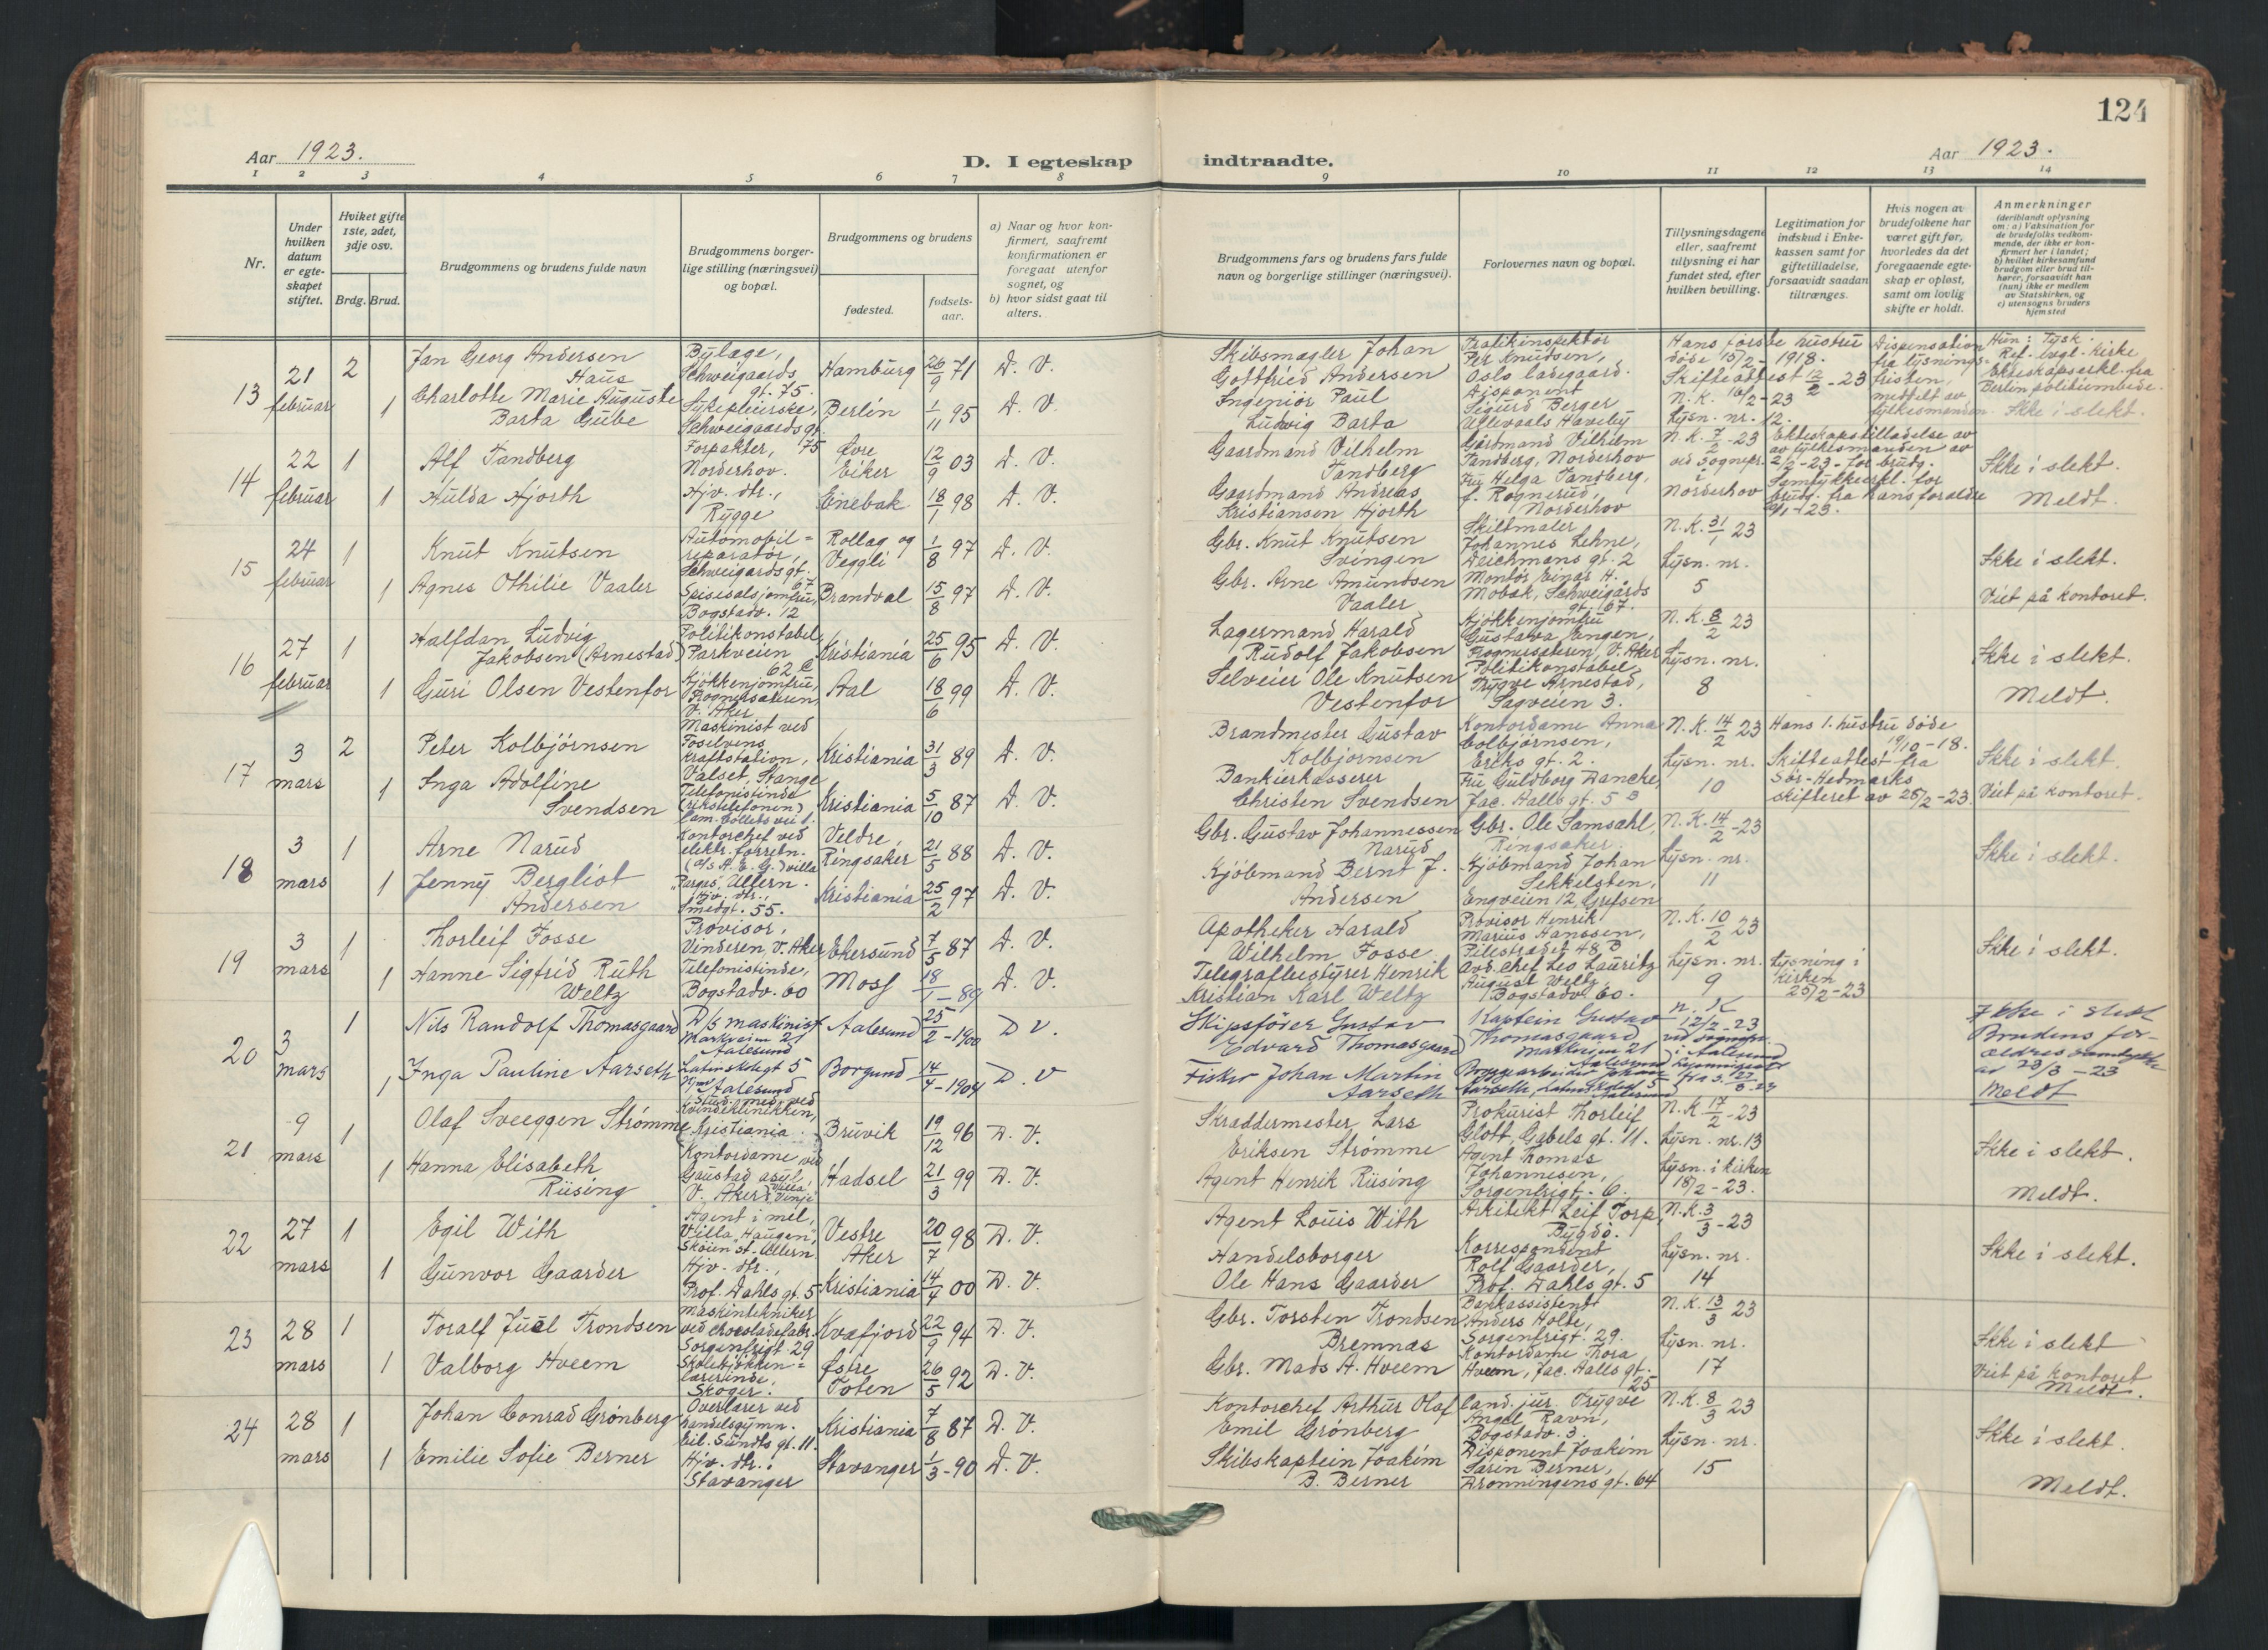 124
Aar 1923.
D. I egteskap indtraadte.
Aar 1923.
1 2 3 4 5 6 7 8 9 10 11 12 13 14
Nr.
Under hvilken datum er egteskapet stiftet.
Hviket gifte 1ste, 2det, 3dje osv.
Brdg. Brud.
Brudgommens og brudens fulde navn
Brudgommens borgerlige stilling (næringsvei) og bopæl.
Brudgommens og brudens
fødested.
fødselsaar.
a) Naar og hvor konfirmert, saafremt konfirmationen er foregaat utenfor sognet, og
b) hvor sidst gaat til alters.
Brudgommens fars og brudens fars fulde navn og borgerlige stillinger (næringsvei).
Forlovernes navn og bopæl.
Tillysningsdagene eller, saafremt tillysning ei har fundet sted, efter hvilken bevilling.
Legitimation for indskud i Enkekassen samt for giftetilladelse, forsaavidt saadan tiltrænges.
Hvis nogen av brudefolkene har været gift før, hvorledes da det foregaaende egteskap er opløst, samt om lovlig skifte er holdt.
Anmerkninger
(deriblandt oplysning om: a) Vaksination for de brudefolks vedkommende, der ikke er konfirmert her i landet; b) hvilket kirkesamfund brudgom eller brud tilhører, forsaavidt han (hun) ikke er medlem av Statskirken, og c) utensogns bruders hjemsted
13
21 februar
2
Jan Georg Andersen Haus
Schweigaards gt. 75.
Hamburg
26/9 71
D. V.
1
Charlotte Marie Auguste Barta Gube
Sykepleierske, Schweigaards gt. 75
Berlin
1/11 95
D. V.
Skibsmægler Johan Gottfried Andersen
Ingeniør Paul Ludwig Barta
Trafikinspektør Per Knudsen, Oslo ladegaard.
Disponent Sigurd Berger Ullevaals Haveby
Hans første hustru døde 15/2-1918.
Skifteattest 12/2-23
N. K. 10/2-23
Lysn. nr. 12.
Dispensation fra lysningsfristen, meddelt av fylkesmanden.
Hun: Tysk.
Ref. evgl. kirke
Ekteskapserkl. fra Berlin politiembede.
Ikke i slekt.
14
22 februar
1
Alf Tandberg
Forpakter, Norderhov.
Øvre Eiker
12/9 03
D. V.
1
Hulda Hjorth
Hjv. dtr., Rygge
Enebak
18/1 98
D. V.
Gaardmand Vilhelm Tandberg
Gaardmand Andreas Kristiansen Hjorth
Gårdmand Vilhelm Tandberg, Norderhov
Fru Helga Tandberg, f. Rognerud, Norderhov
N. K. 7/2-23
ved sognepr. i Norderhov
Ekteskapstilladelse av av fylkesmanden av 2/2-23 for brudg.
Samtykkeerkl. for brudg. fra hans foraldre
Ikke i slekt.
Meldt.
15
24 februar
1
Knut Knutsen
Automobilreparatør, Schweigardsgt. 67
Rollag og Veggli
1/8 97
D. V.
1
Agnes Othilie Vaaler
Spisesalsjomfru, Bogstadv. 12
Brandval
15/8 97
D. V.
Gbr. Knut Knutsen Svingen
Gbr. Arne Amundsen Vaaler
Skiltmaler Johannes Lehne, Deichmans gt. 2
Montør Einar H. Mobak, Schweigårds gt. 67.
N. K. 31/1 23
Lysn. nr. 5
Ikke i slekt.
Viet på kontoret.
16
27 februar
1
Halfdan Ludvig Jakobsen (Arnestad)
Politikonstabel, Parkveien 62 C
Kristiania
25/6 95
D. V.
1
Guri Olsen Vestenfor
Kjøkkenjomfru, Frognersæteren, V. Aker
Aal
18/6 99
D. V.
Lagermand Harald Rudolf Jakobsen
Selveier Ole Knutsen Vestenfor
Kjøkkenjomfru Gustava Engen, Frognersæteren, V. Aker
Politikonstabel Trygve Arnestad, Sagveien 3.
N. K. 8/2 23
Lysn. nr. 8
Ikke i slekt.
Meldt.
17
3 mars
2
Peter Kolbjørnsen
Maskinist ved Foselvens Kraftstation, Valset, Stange
Kristiania
31/3 89
D. V.
1
Inga Adolfine Svendsen
Telefonistinde (rikstelefonen) Cam. Colletts vei 1.
Kristiania
5/10 87
D. V.
Brandmester Gustav Kolbjørnsen
Bankierkasserer Christen Svendsen
Kontordame Anna Colbjørnsen, Eriks gt. 2.
Fru Guldborg Dancke, Jac. Aalls gt. 5 B
N. K. 14/2 23
Lysn. nr. 10
Hans 1. hustru døde 19/10-18.
Skifteattest fra Sør-Hedmarks skifteret av 26/2-23.
Ikke i slekt.
Viet på kontoret.
18
3 mars
1
Arne Narud
Kontorchef ved elektr. forretn. (a/s A. E. G.) villa "Pargas", Ullern.
Veldre, Ringsaker
21/5 88
D. V.
1
Jenny Bergliot Andersen
Hjv. dtr., Smedgt. 55.
Kristiania
25/2 97
D. V.
Gbr. Gustav Johannessen Narud
Kjøbmand Bernt J. Andersen
Gbr. Ole Samsahl, Ringsaker
Kjøbmand Johan Sekkelsten, Engveien 12, Grefsen
N. K. 14/2-23
Lysn. nr. 11
Ikke i slekt.
19
3 mars
1
Thorleif Fosse
Provisor, Vinderen, V. Aker
Ekersund
7/5 87
D. V.
1
Hanne Sigfrid Ruth Weltz
Telefonistinde, Bogstadv. 60
Moss
18/1-89
D. V.
Apotheker Harald Wilhelm Fosse
Telegrafbestyrer Henrik Kristian Karl Weltz
Provisor Henrik Marius Hanssen, Pilestrædet 48 B
Avd. chef Leo Lauritz August Weltz, Bogstadv. 60.
N. K. 10/2 23
Lysn. nr. 9
Lysning i kirken 25/2-23
Ikke i slekt.
20
3 mars
1
Nils Randolf Thomasgaard
D/s maskinist Markveien 21 Aalesund
Aalesund
25/2-1900
D V.
1
Inga Pauline Aarseth
Latinskolegt 5 Aalesund
Borgund
14/4-1904
D. V
Skipsfører Gustav Edvard Thomasgaard
Fisker Johan Martin Aarseth
Kaptein Gustav Thomasgaard Markveien 21 Aalesund
Bryggearbeider Johan Aarseth, Latinskolegt 5 Aalesund
N. K 12/2-23
ved sognepr. i Aalesund
Ikke i slekt
Brudens forældres samtykke av 28/3-23
Meldt
21
9 mars
1
Olaf Sveeggen Strømme
Stud. med. ved Kvindeklinikken, Kristiania.
Bruvik
19/12 96
D. V.
1
Hanna Elisabeth Riising
Kontordame ved Gaustad asyl, V. Aker. Villa "Venje"
Hadsel
21/3 99
D. V.
Skræddermester Lars Eriksen Strømme
Agent Henrik Riising
Prokurist Thorleif Glott, Gabels gt. 11.
Agent Thomas Johannesen, Sorgenfrigt. 6.
N. K. 17/2-23
Lysn. nr. 13
Lysn. i kirken 18/2-23.
Ikke i slekt.
Meldt.
22
27 mars
1
Egil With
Agent i mel, Villa "Haugen", Skøien st. Ullern.
Vestre Aker
20/7 98
D. V.
1
Gunvor Gaarder
Hjv. dtr., Prof. Dahls gt. 5
Kristiania
14/4 00
D. V.
Agent Louis With
Handelsborger Ole Hans Gaarder
Arkitekt Leif Torp, Bygdø.
Korrespondent Rolf Gaarder, Prof. Dahls gt. 5
N. K. 3/3-23
Lysn. nr. 14
Ikke i slekt.
23
28 mars
1
Toralf Juel Trondsen
Maskintekniker ved chocoladefabr. Sorgenfrigt. 29
Kvæfjord
22/9 94
D. V.
1
Valborg Hveem
Skolekjøkkenlærerinde, Skoger.
Østre Toten
26/5 92
D. V.
Gbr. Torsten Trondsen Bremnæs
Gbr. Mads A. Hveem
Bankassistent Anders Holte, Sorgenfrigt. 29.
Kontordame Thora Hveem, Jac. Aalls gt. 25
N. K. 13/3 23
Lysn. nr. 17
Ikke i slekt
Viet på kontoret
Meldt.
24
28 mars
1
Johan Conrad Grønberg
Overlærer ved handelsgymn. Eil. Sundts gt. 11.
Kristiania
7/8 87
D. V.
1
Emilie Sofie Berner
Hjv. dtr., Stavanger
Stavanger
1/3-90
D. V.
Kontorchef Arthur Olaf Emil Grønberg
Skibskaptein Joakim B. Berner
Cand. jur. Trygve Angell Ravn, Bogstadv. 3.
Disponent Joakim Sarin Berner, Dronningens gt. 64
N. K. 8/3 23
Lysn. nr. 15
Ikke i slekt.
Meldt.